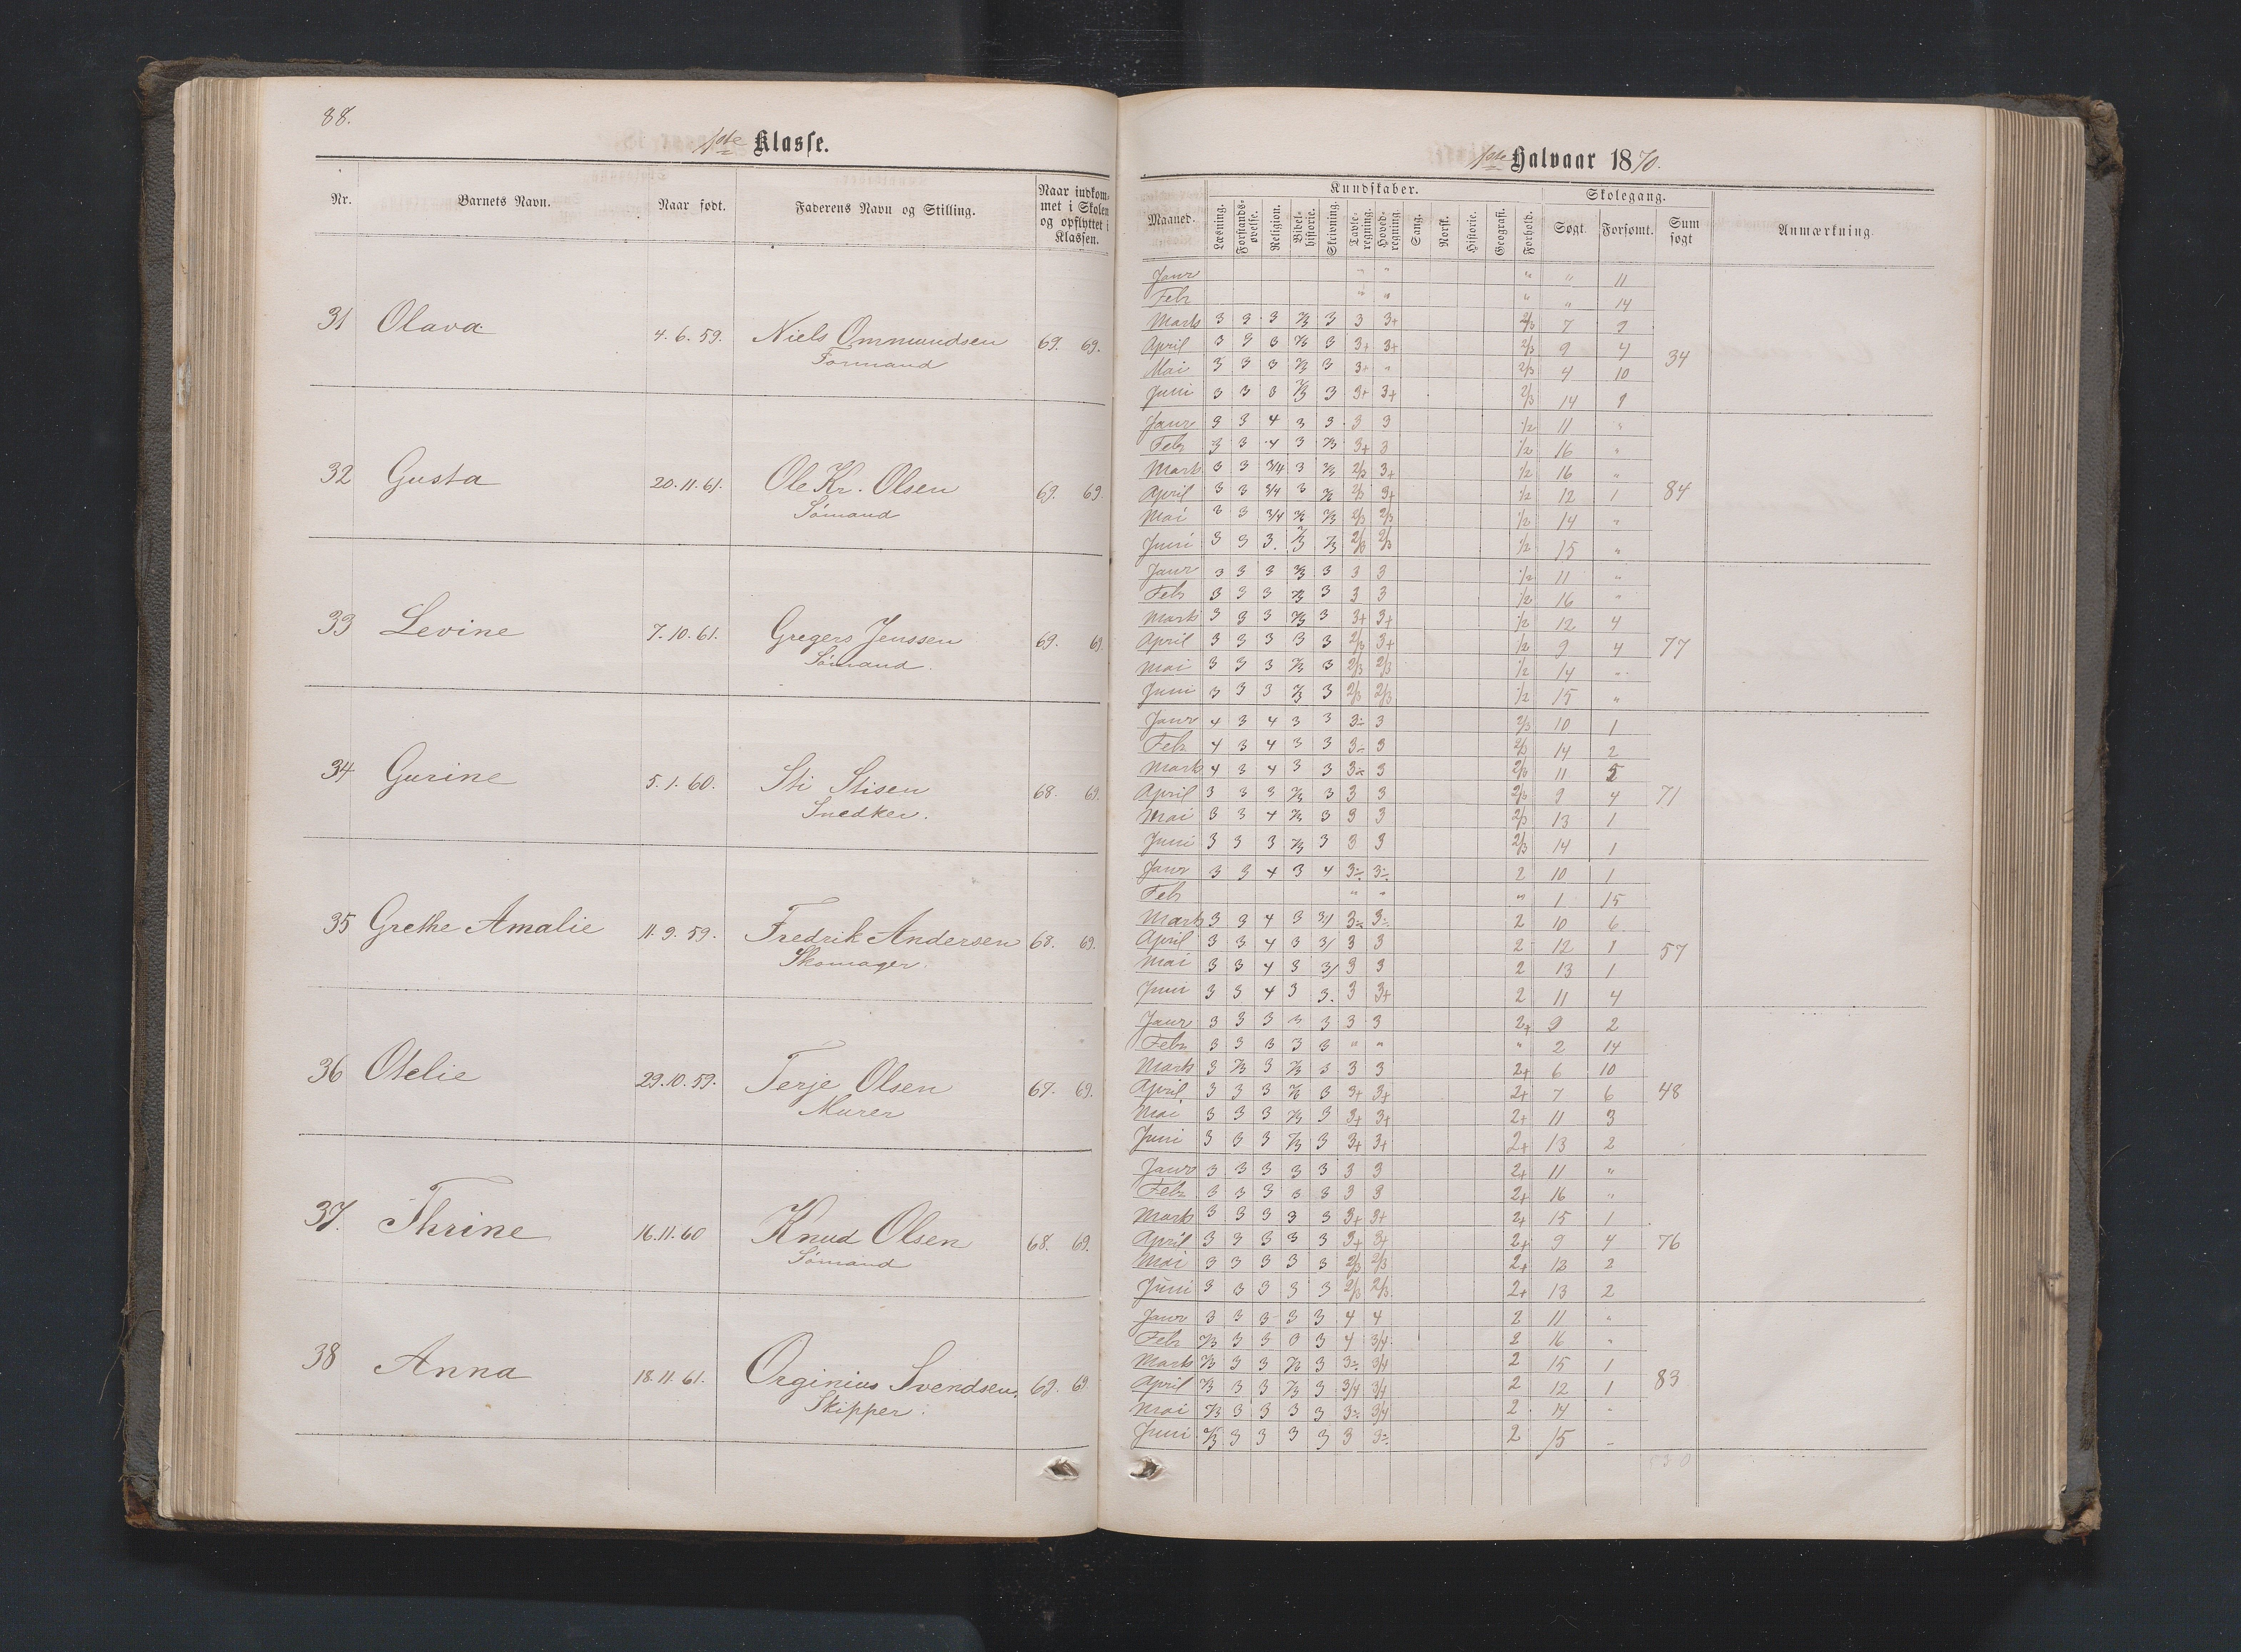 88.
1ste Klasse.
Nr. Barnets Navn. Naar født. Faderens Navn og Stilling. Naar indkommet i Skolen og opflyttet i Klassen.
31 Olava 4.6.59. Niels Ommundsen 69. 69.
Formand
32 Gusta 20.11.61. Ole Kr. Olsen 69. 69.
Sömand
33 Levine 7.10.61. Gregers Jenssen 69. 69.
Sömand.
34 Gurine 5.1.60. Sti Stisen 68. 69.
Snedker.
35 Grethe Amalie 11.9.59. Fredrik Andersen 68. 69.
Skomager.
36 Otelie 29.10.59. Terje Olsen 67. 69.
Murer
37. Thrine 16.11.60 Knud Olsen 68. 69.
Sömand
38 Anna 18.11.61. Orginius Svendsen. 69. 69
Skipper.
1ste Halvaar 1870.
Kundskaber. Skolegang.
Maaned. Læsning. Forstandsøvelse. Religion. Bibelhistorie. Skrivning. Tavleregning. Hovedregning. Sang. Norsk. Historie. Geografi. Forhold. Søgt. Forsømt. Sum søgt Anmærkning.
Janr " " " " 11
Febr " " " " 14
Marts 3 3 3 2/3 3 3 3+ 2/3 7 9
April 3 3 3 2/3 3 3+ 3+ 2/3 9 4 34
Mai 3 3 3 2/3 3 3+ " 2/3 4 10
Juni 3 3 3 2/3 3 3+ 3+ 2/3 14 1
Janr 3 3 4 3 3 3 3 1/2 11 "
Febr 3 3 4 3 2/3 3+ 3 1/2 16 "
Marts 3 3 3/4 3 2/3 2/3 3+ 1/2 16 "
April 3 3 3/4 3 2/3 2/3 3+ 1/2 12 1 84
Mai 3 3 3/4 2/3 2/3 2/3 2/3 1/2 14 "
Juni 3 3 3. 2/3 2/3 2/3 2/3 1/2 15 "
Janr 3 3 3 2/3 3 3 3 1/2 11 "
Febr 3 3 3 2/3 3 3 3 1/2 16 "
Marts 3 3 3 2/3 3 3+ 3+ 1/2 12 4
April 3 3 3 3 3 2/3 3+ 1/2 9 4 77
Mai 3 3 3 2/3 3 2/3 2/3 1/2 14 "
Juni 3 3 3 2/3 3 2/3 2/3 1/2 15 "
Janr 4 3 4 3 3 3÷ 3 2/3 10 1
Febr 4 3 4 3 3 3÷ 3 2/3 14 2
Marts 4 3 4 3 3 3÷ 3 2/3 11 5
April 3 3 3 2/3 3 3 3 2/3 9 4 71
Mai 3 3 4 2/3 3 3 3 2/3 13 1
Juni 3 3 3 2/3 3 3 3 2/3 14 1
Janr 3 3 4 3 4 3÷ 3÷ 2 10 1
Febr " " " 1 15
Marts 3 3 4 3 3/ 3÷ 3÷ 2 10 6
April 3 3 4 3 3/ 3 3 2 12 1 57
Mai 3 3 4 3 3/ 3 3 2 13 1
Juni 3 3 4 3 3. 3 3+ 2 11 4
Janr 3 3 3 3 3 3 3 2+ 9 2
Febr 3 3 3 3 3 " " " 2 14
Marts 3 2/3 3 2/3 3 3 3 2+ 6 10
April 3 3 3 2/3 3 3+ 3+ 2+ 7 6 48
Mai 3 3 3 2/3 3 3+ 3+ 2+ 11 3
Juni 3 3 3 2/3 3 3+ 3+ 2+ 13 2
Janr 3 3 3 3 3 3 3 2+ 11 "
Febr 3 3 3 3 3 3 3 2+ 16 "
Marts 3 3 3 3 3 3+ 3+ 2+ 15 1
April 3 3 3 3 3 3+ 3+ 2+ 9 4 76
Mai 3 3 3 3 3 2/3 2/3 2+ 12 2
Juni 3 3 3 3 3 2/3 2/3 2+ 13 2
Janr 3 3 3 3 3 4 4 2 11 "
Febr 2/3 3 3 3 3 4 3/4 2 16 "
Marts 2/3 3 3 2/3 3 3÷ 3/4 2 15 1
April 2/3 3 3 2/3 3 3/4 3/4 2 12 1 83
Mai 2/3 3 3 3 3 3÷ 3/4 2 14 "
Juni 2/3 3 3 3 3 3 3÷ 2 15 "